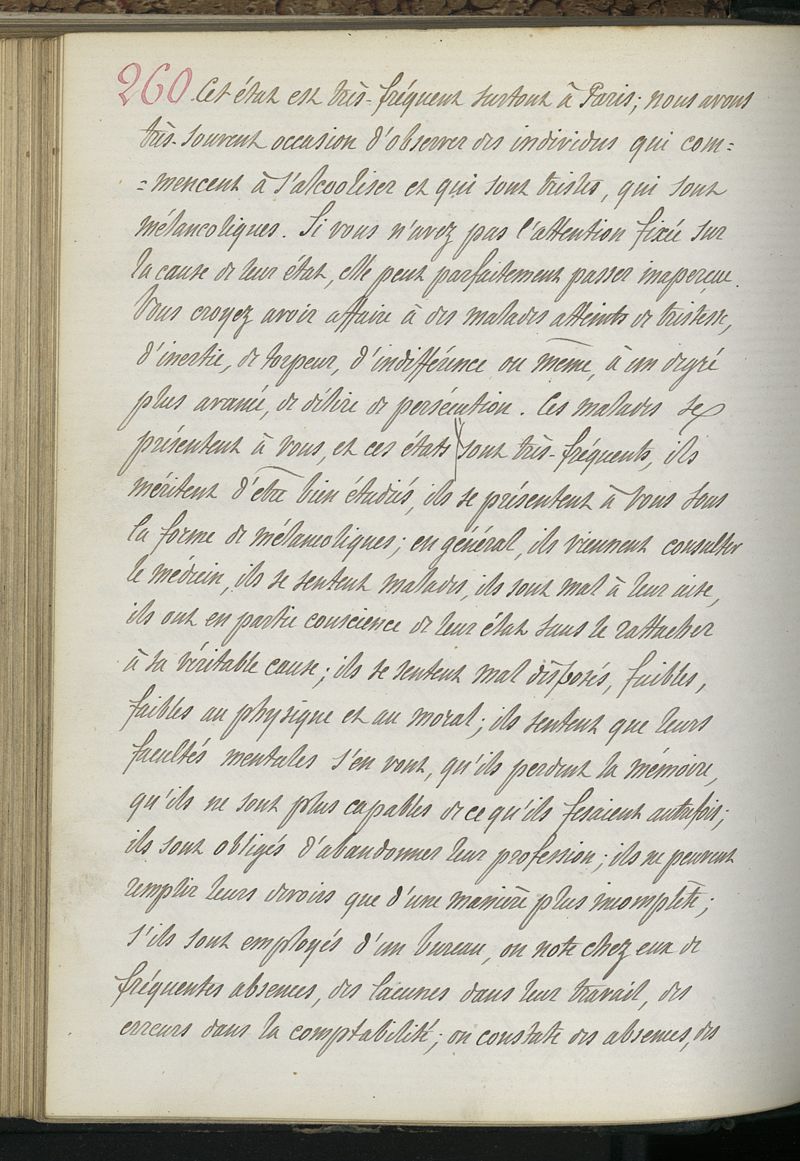 260. Cet état est très-fréquent surtout à Paris; nous avons
très-souvent occasion d'observer des individus qui com=
=mencent à s'alcooliser et qui sont tristes, qui sont
mélancoliques. Si vous n'avez pas l'attention fixée sur
la cause de leur état, elle peut parfaitement passer inaperçue.
Vous croyez avoir affaire à des malades atteints de tristesse,
d'inertie, de torpeur, d'indifférence ou même, à un degré
plus avancé, de délire de persécution. Ces malades se
présentent à vous, et ces états sont très-fréquents, ils
méritent d'être bien étudiés, ils se présentent à vous sous
la forme de mélancoliques; en général, ils viennent consulter
le médecin, ils se sentent malades, ils sont mal à leur aise,
ils ont en partie conscience de leur état sans le rattacher
à sa véritable cause; ils se sentent mal disposés, faibles,
faibles au physique et au moral; ils sentent que leurs
facultés mentales s'en vont, qu'ils perdent la mémoire,
qu'ils ne sont plus capables de ce qu'ils fesaient autrefois;
ils sont obligés d'abandonner leur profession; ils ne peuvent
remplir leurs devoirs que d'une manière plus incomplète;
s'ils sont employés d'un bureau, on note chez eux de
fréquentes absences, des lacunes dans leur travail, des
erreurs dans la comptabilité; on constate des absences, des